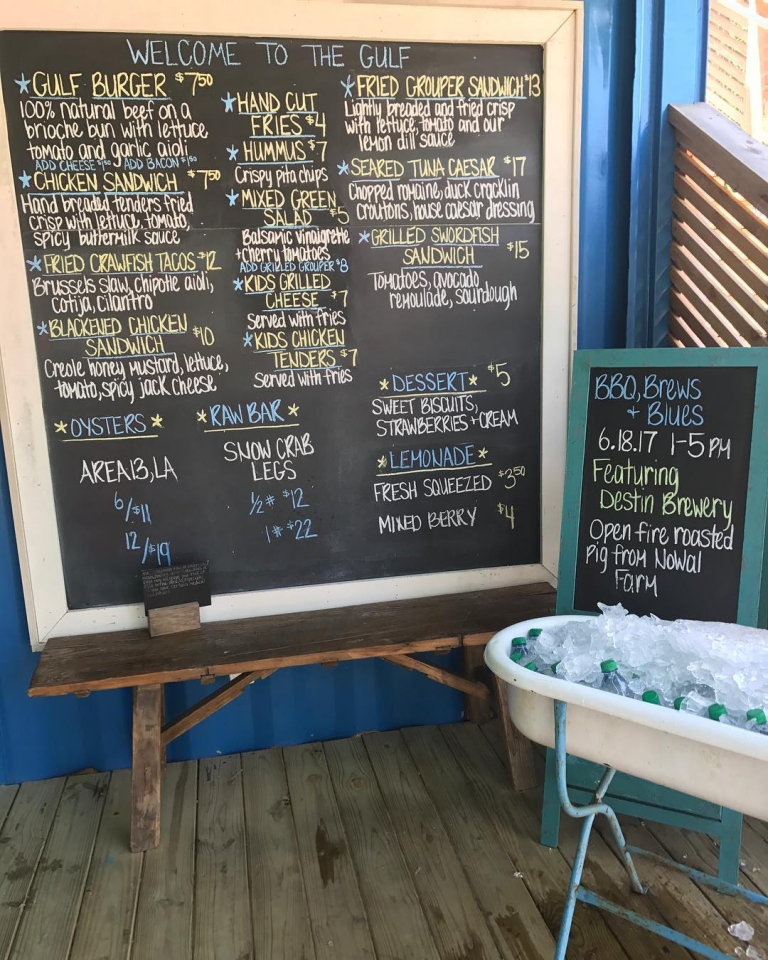 WELCOME TO THE GULF
*GULF BURGER $7.50
100% natural beef on a
brioche bun with lettuce,
tomato and garlic aioli
ADD CHEESE $1.50 ADD BACON $1.50
*CHICKEN SANDWICH $7.50
Hand breaded tenders fried
crisp with lettuce, tomato,
spicy buttermilk sauce
*FRIED CRAWFISH TACOS $12
Brussels slaw, chipotle aioli,
cotija, cilantro
*BLACKENED CHICKEN
SANDWICH $10
Creole honey mustard, lettuce,
tomato, spicy jack cheese
*HAND CUT
FRIES $4
*HUMMUS $7
Crispy pita chips
*MIXED GREEN
SALAD $5
Balsamic vinaigrette
+cherry tomatoes
ADD GRILLED GROUPER $8
*KIDS GRILLED
CHEESE $7
Served with fries
*KIDS CHICKEN
TENDERS $7
Served with fries
*FRIED GROUPER SANDWICH $13
Lightly breaded and fried crisp
with lettuce, tomato and our
lemon dill sauce
*SEARED TUNA CAESAR $17
Chopped romaine, duck cracklin
croutons, house caesar dressing
*GRILLED SWORDFISH
SANDWICH $15
Tomatoes, avocado
remoulade, sourdough
*OYSTERS*
AREA 13, LA
6/$11
12/$19
*RAW BAR*
SNOW CRAB
LEGS
1/2# $12
1# $22
*DESSERT* $5
SWEET BISCUITS,
STRAWBERRIES + CREAM
*LEMONADE*
FRESH SQUEEZED $3.50
MIXED BERRY $4
BBQ, Brews
+ Blues
6.18.17 1-5 PM
Featuring
Destin Brewery
Open fire roasted
pig from Nowal
Farm